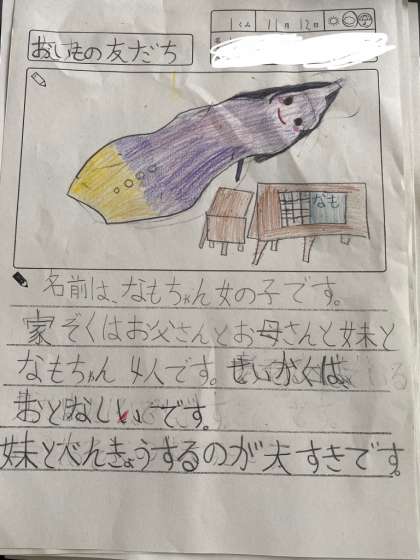 1くみ 11月12日
おいもの友だち
なも
名前は、なもちゃん女の子です。
家ぞくはお父さんとお母さんと妹と
なもちゃん4人です。せいかくは、
おとなしいです。
妹とべんきょうするのが大すきです。